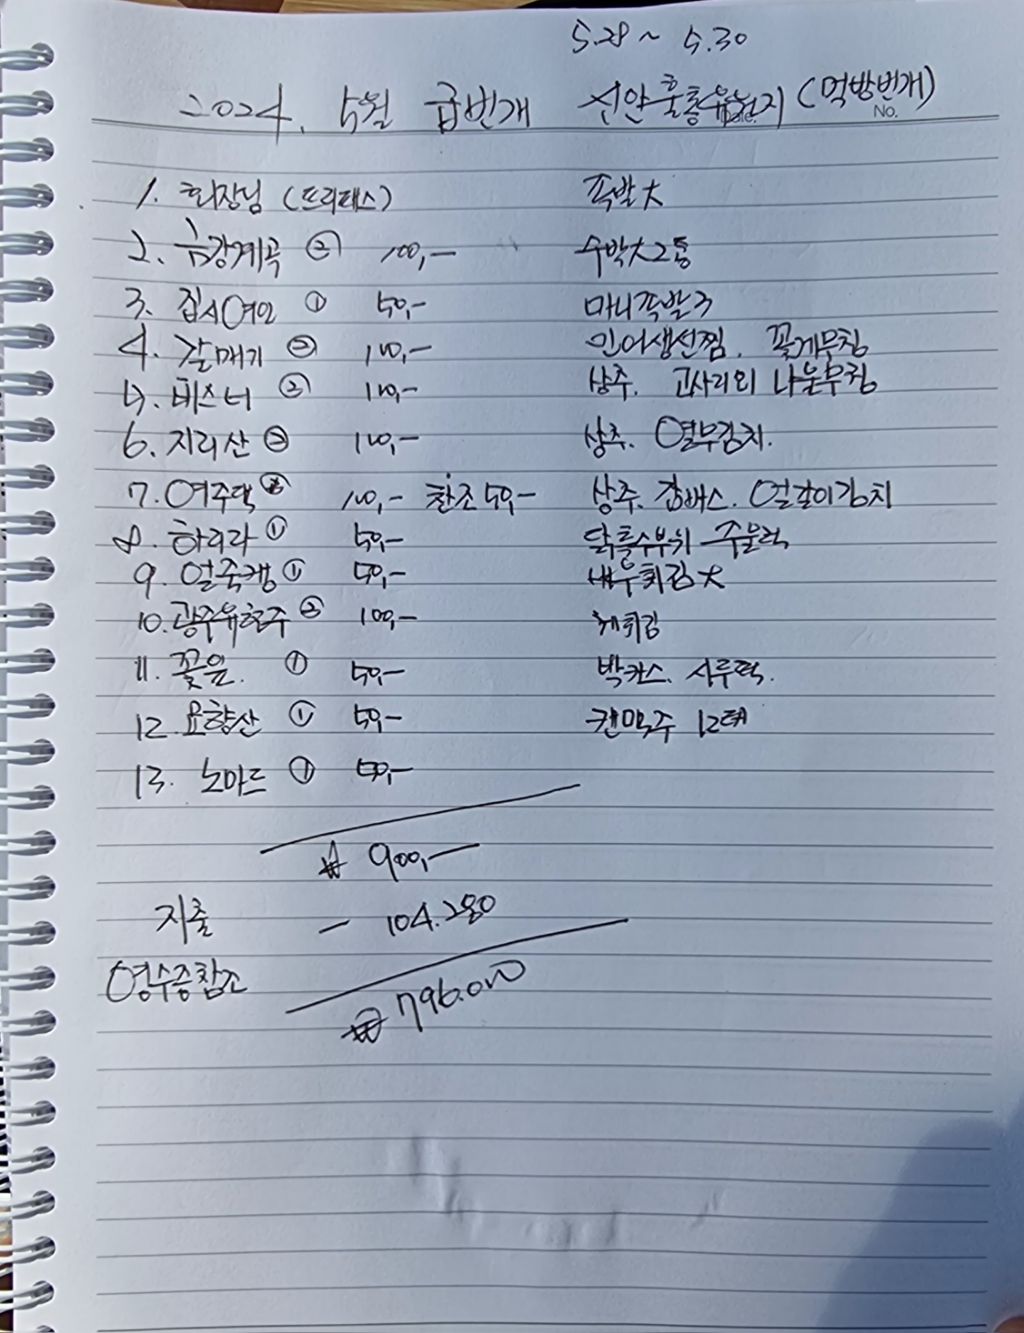 5.28 ~ 5.30
2024. 5월 급번개 신안홀통유원지 (먹방번개)
No.
1. 회장님 (프리패스) 족발大
2. 금강계곡 ② 100,- 수박大2통
3. 집시여인 ① 50,- 마니족발3
4. 갈매기 ② 100,- 민어생선찜. 꽃게무침
5. 비스터 ② 100,- 상추. 고사리외 나물무침
6. 지리산 ② 100,- 상추. 열무김치.
7. 여주댁 ② 100,- 찬조 50,- 상추. 얼갈이김치
8. 하리라 ① 50,- 닭특수부위 주물럭
9. 얼죽캠 ① 50,- 새우튀김大
10. 광주유현주 ② 100,-
11. 꽃을. ① 50,- 박카스. 시루떡.
12. 요향산 ① 50,- 캔맥주 12
13. 노마드 ① 50,-
₩ 900,-
지출 - 104.280
영수증참조
₩ 796.000